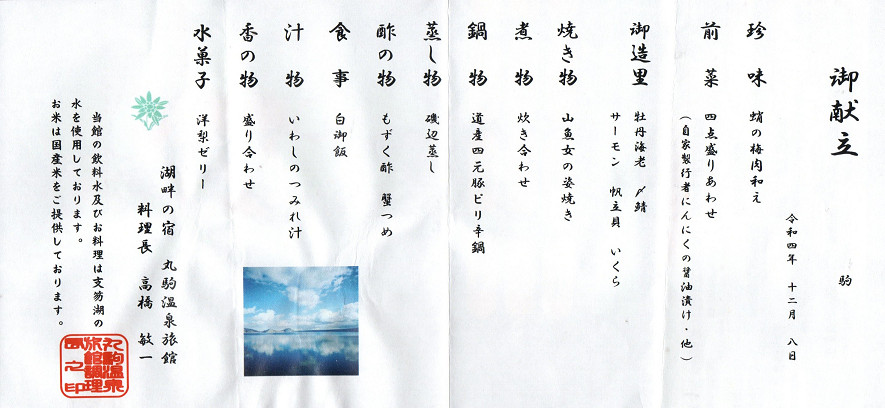 御献立
駒
令和四年 十二月 八日
珍味 蛸の梅肉和え
前菜 四点盛りあわせ
(自家製行者にんにくの醤油漬け・他)
御造里 牡丹海老 〆鯖
サーモン 帆立貝 いくら
焼き物 山魚女の姿焼き
煮物 炊き合わせ
鍋物 道産四元豚ピリ辛鍋
蒸し物 磯辺蒸し
酢の物 もずく酢 蟹つめ
食事 白御飯
汁物 いわしのつみれ汁
香の物 盛り合わせ
水菓子 洋梨ゼリー
湖畔の宿 丸駒温泉旅館
料理長 高橋 敏一
当館の飲料水及びお料理は支笏湖の
水を使用しております。
お米は国産米をご提供しております。
丸駒温泉
旅館調理